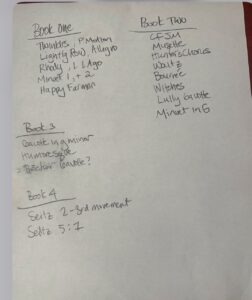 Book One
Twinkles P'Motion
Lightly Row, Allegro
Rhody, LLAgo
Minuet 1, + 2
Happy Farmer
Book Two
CFJM
Musette
Hunter's Chorus
Waltz
Bourrée
Witches
Lully Gavotte
Minuet in G
Book 3
Gavotte in g minor
Humoresque
Gavotte?
Book 4
Seitz 2 - 3rd movement
Seitz 5:1